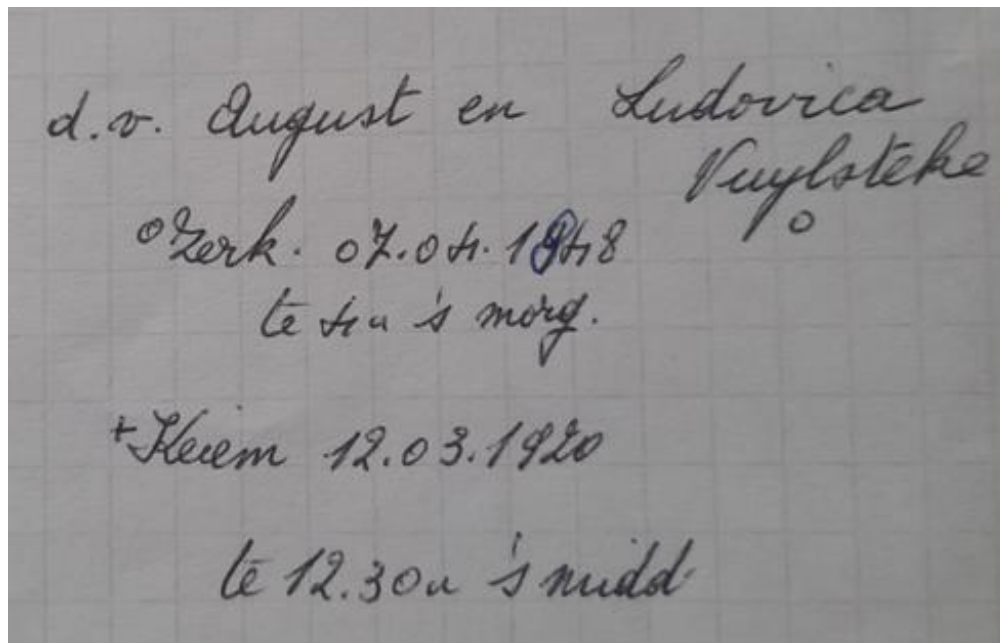 d.v. August en Ludovica
Vuylsteke
°Zerk. 07.04.1848 o
te 4u 's morg.
+Keiem 12.03.1920
te 12.30u 's midd.